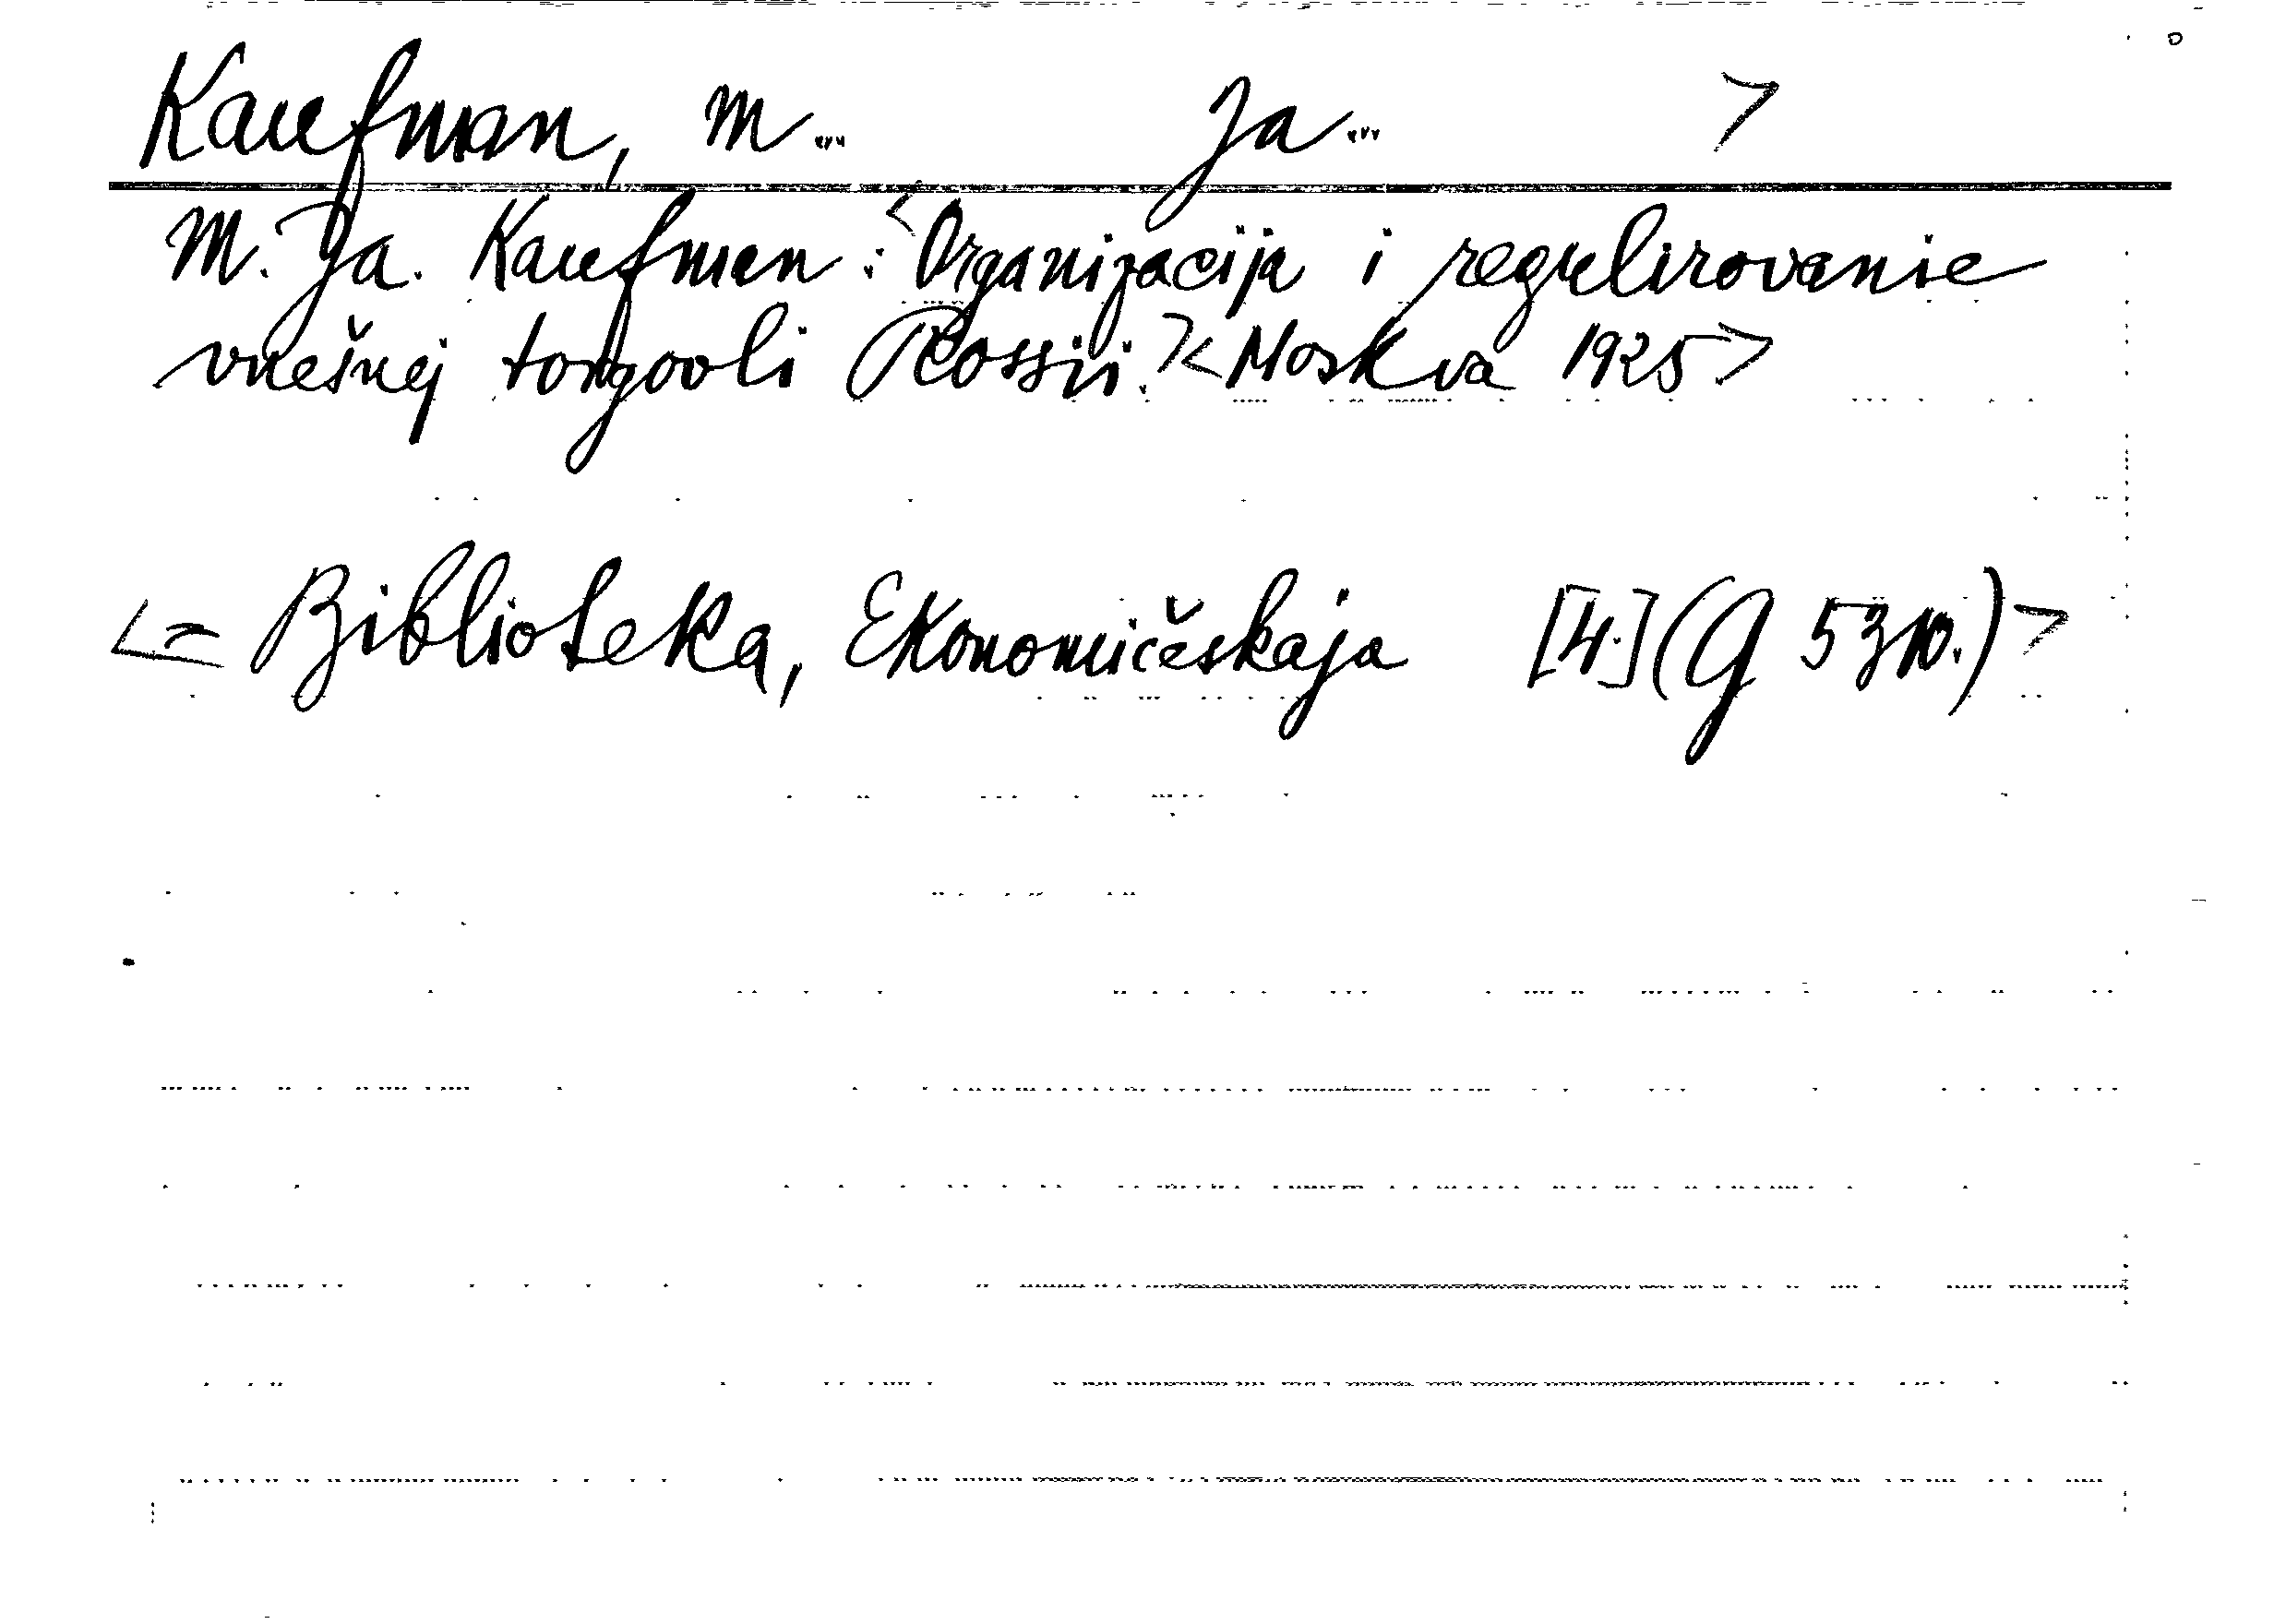 Kaufman, M... Ja... >
M. Ja. Kaufman: <Organizacija i regulirovanie
vnešnej torgovli Rossii.><Moskva 1925>
<= Biblioteka, Ekonomičeskaja [4.] (G 5310.)>